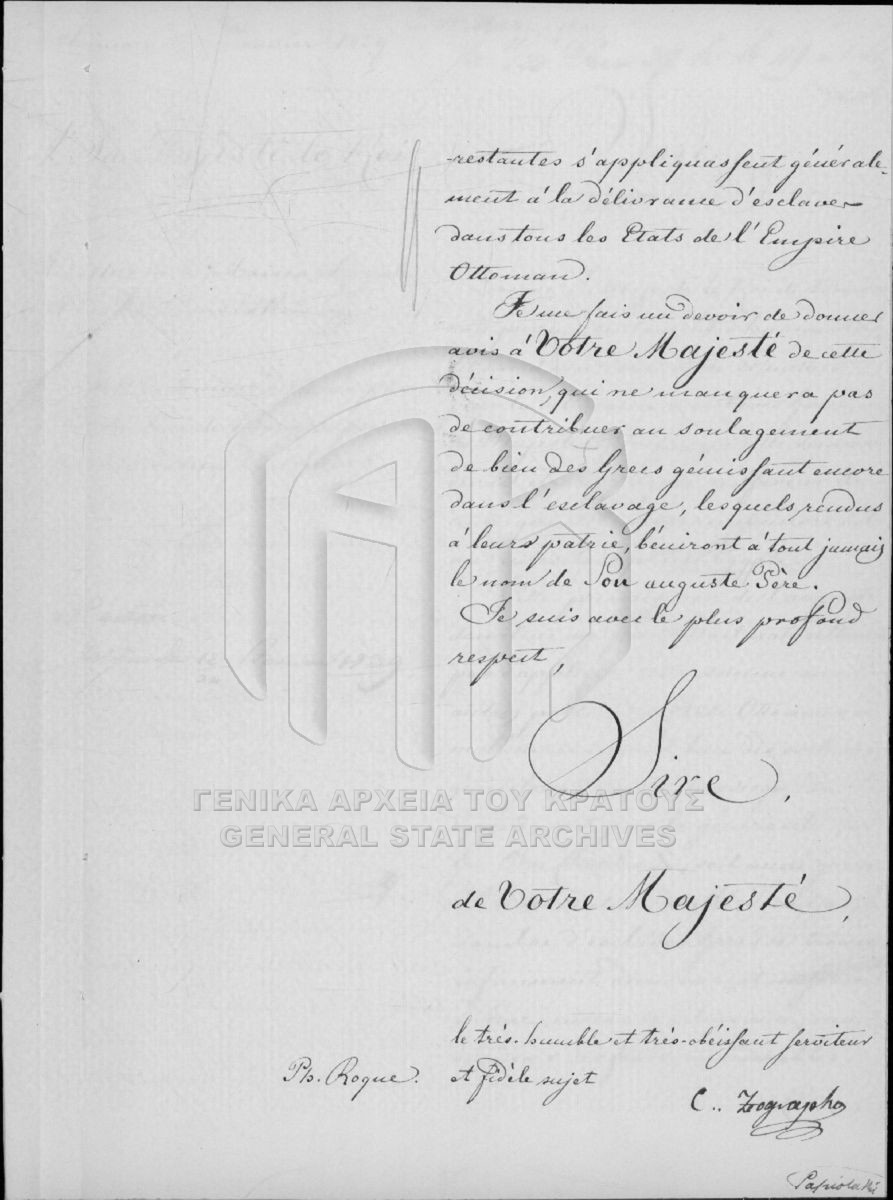 -restantes s'appliquassent générale-
ment à la délivrance d'esclaves
dans tous les Etats de l'Empire
Ottoman.
Je me fais un devoir de donner
avis à Votre Majesté de cette
décision, qui ne manquera pas
de contribuer au soulagement
de bien des Grecs gémissant encore
dans l'esclavage, lesquels rendus
à leurs patrie, béniront à tout jamais
le nom de Son auguste Père.
Je suis avec le plus profond
respect,
Sire,
ΓΕΝΙΚΑ ΑΡΧΕΙΑ ΤΟΥ ΚΡΑΤΟΥΣ
GENERAL STATE ARCHIVES
de Votre Majesté,
le très-humble et très-obéissant serviteur
Ph. Roque. et fidèle sujet
C. Zographo